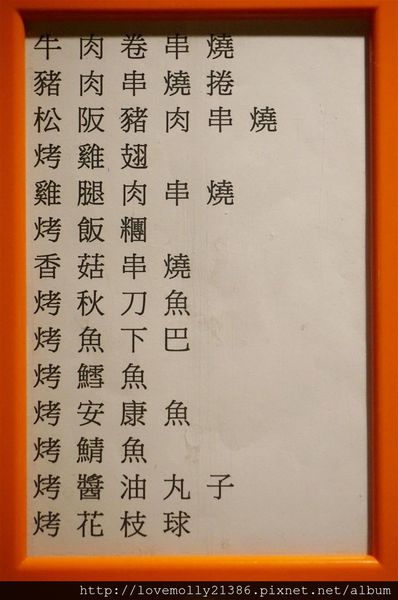 牛肉卷串燒
豬肉串燒捲
松阪豬肉串燒
烤雞翅
雞腿肉串燒
烤飯糰
香菇串燒
烤秋刀魚
烤魚下巴
烤鱈魚
烤安康魚
烤鯖魚
烤醬油丸子
烤花枝球
http://lovemolly21386.pixnet.net/album